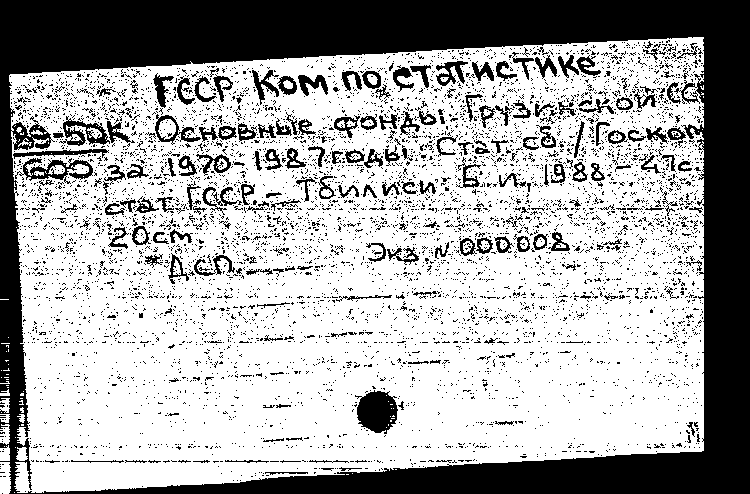 ГССР. Ком. по статистике.
89-5ДК Основные фонды Грузинской ССР
600 за 1970-1987 годы: Стат. сб. / Госком
стат ГССР. – Тбилиси: Б. и., 1988. – 47с.
20cm.
ДСП. Экз. N 000008.